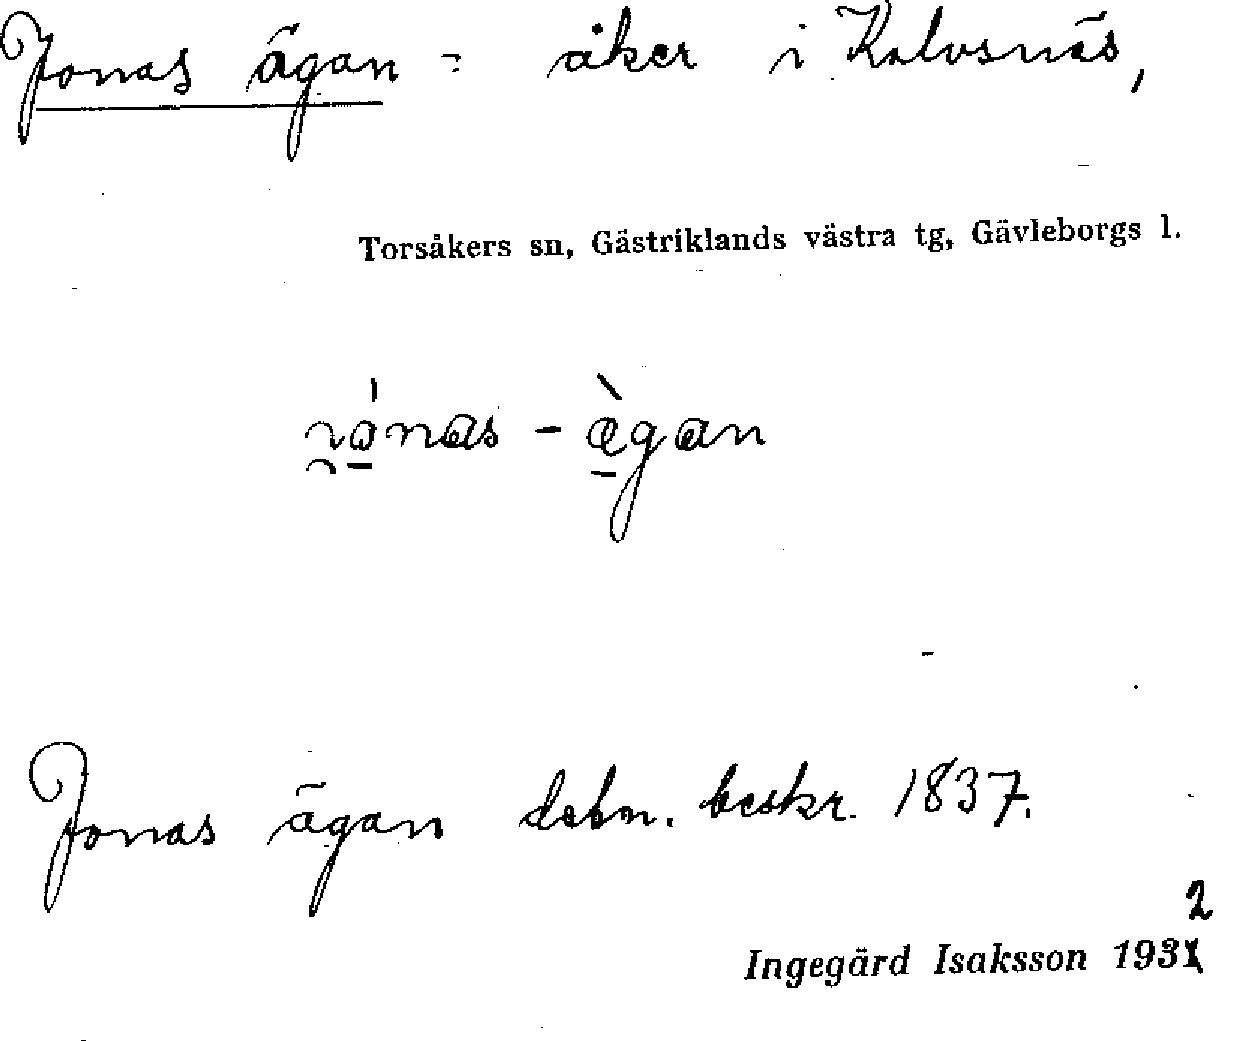 Jonas ägan = åker i Kalvsnäs,
Torsåkers sn, Gästriklands västra tg, Gävleborgs l.
Jonas ägan debn. beskr. 1837.
2
Ingegärd Isaksson 1931